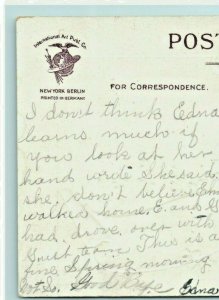 International Art Publ. Co.
NEW YORK BERLIN
PRINTED IN GERMANY
POS
FOR CORRESPONDENCE.
I don't think Edna
learns much if
you look at her
hand write She said
she don't believe Em
walked home. E. and G
had drove over with
team. This is a
fine Spring morning
Good Bye Edna